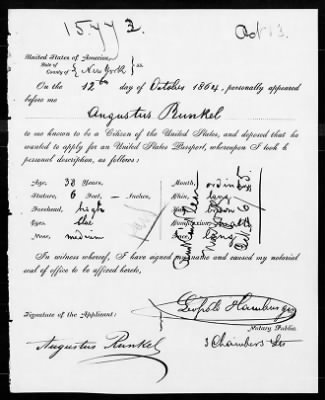 15.443.
Oct 13.
United States of America,
State of
County of } New York } ss.
On the 12th day of October 1864, personally appeared
before me
Augustus Runkel
to me known to be a Citizen of the United States, and deposed that he
wanted to apply for an United States Passport, whereupon I took his
personal description, as follows:
Age, 38 Years,
Stature, 6 Feet — Inches,
Forehead, high
Eyes, blue
Nose, medium
Mouth, ordin
Chin, long
Hair, brown
Complexion,
Face, long
In witness whereof, I have signed my name and caused my notarial
seal of office to be affixed hereto,
Leopold Hamburger
Notary Public.
Signature of the Applicant:
3 Chambers Str
Augustus Runkel